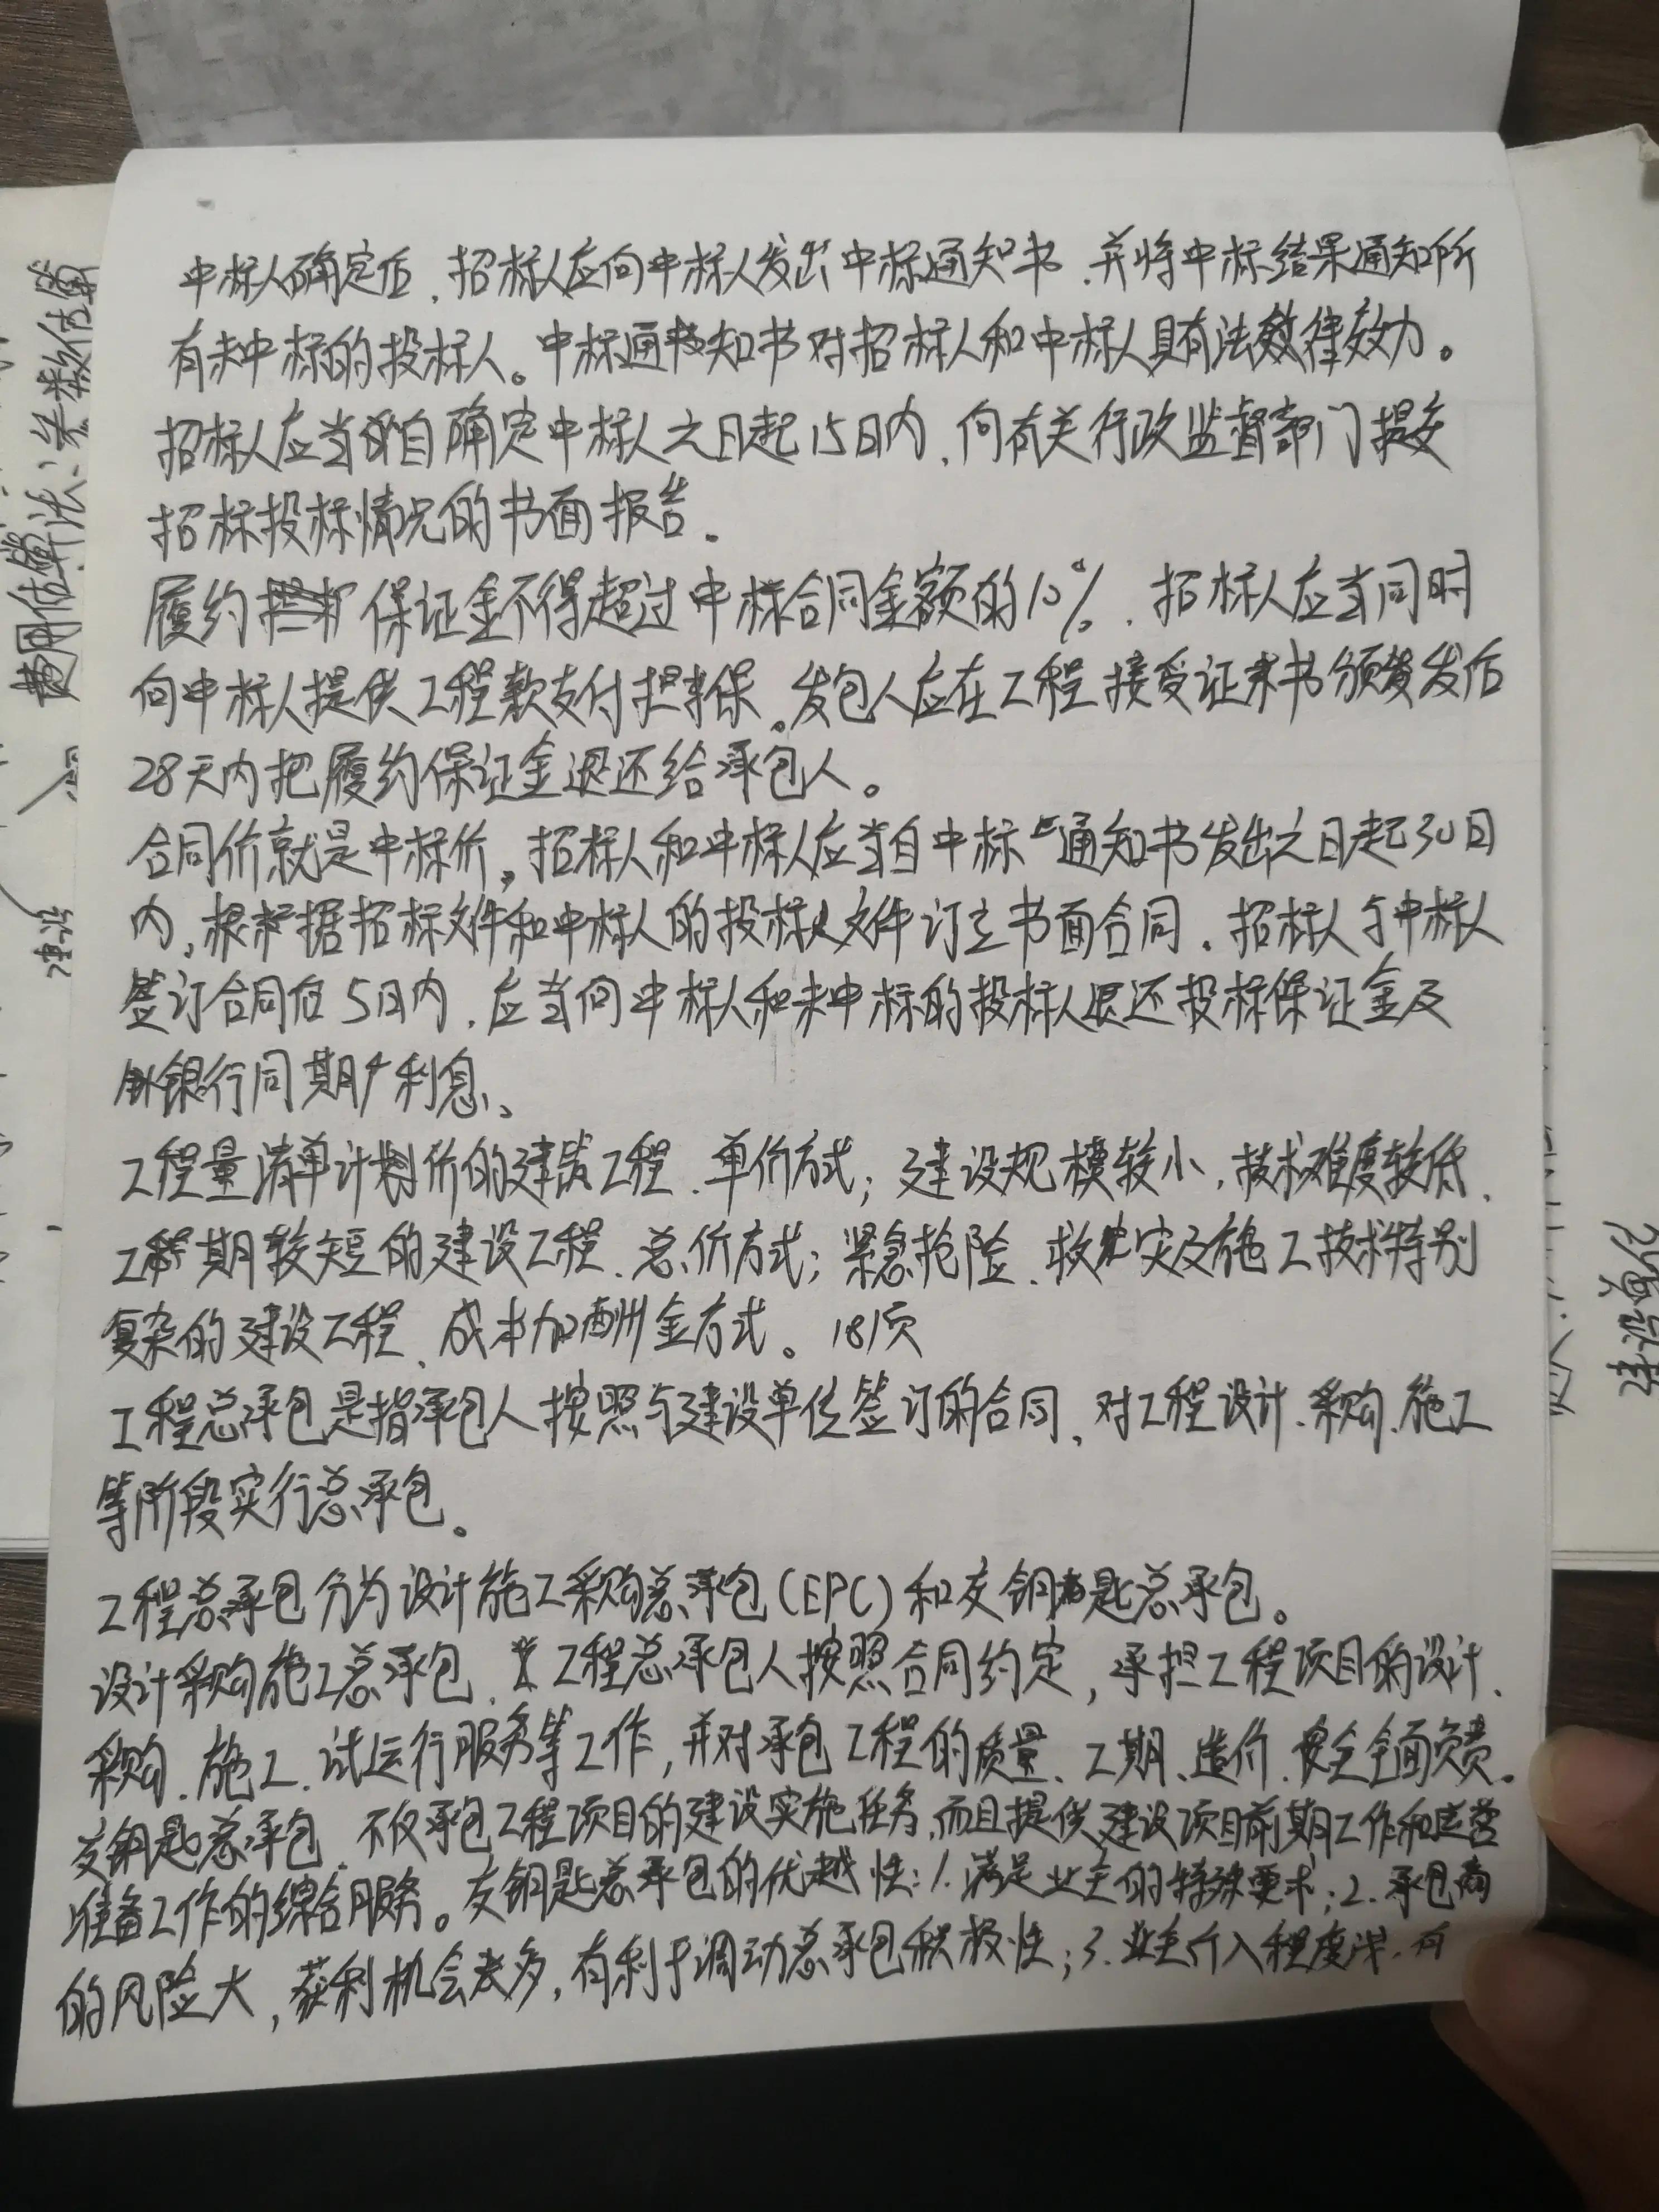 中标人确定后,招标人应向中标人发出中标通知书,并将中标结果通知所
有未中标的投标人。中标通知书对招标人和中标人具有法律效力。
招标人应当自确定中标人之日起15日内,向有关行政监督部门提交
招标投标情况的书面报告。
履约保证金不得超过中标合同金额的10%,招标人应当同时
向中标人提供工程款支付担保。发包人应在工程接受证书颁发后
28天内把履约保证金退还给承包人。
合同价就是中标价。招标人和中标人应当自中标通知书发出之日起30日
内,根据招标文件和中标人的投标文件订立书面合同。招标人与中标人
签订合同后5日内,应当向中标人和未中标的投标人退还投标保证金及
银行同期利息、
工程量清单计价的建筑工程、单价方式;建设规模较小,技术难度较低、
工期较短的建设工程、总价方式;紧急抢险、救灾及施工技术特别
复杂的建设工程、成本加酬金方式。181页
工程总承包是指承包人按照与建设单位签订的合同,对工程设计、采购、施工
等阶段实行总承包。
工程总承包分为设计施工采购总承包(EPC)和交钥匙总承包。
设计采购施工总承包、工程总承包人按照合同约定,承担工程项目的设计、
采购、施工、试运行服务等工作,并对承包工程的质量、工期、造价、安全全面负责。
交钥匙总承包、不仅承包工程项目的建设实施任务,而且提供建设项目前期工作和运营
准备工作的综合服务。交钥匙总承包的优越性:1.满足业主的特殊要求;2.承包商
的风险大,获利机会多,有利于调动总承包积极性;3.业主介入程度浅,有
费用估算法、类数估算
建设单位